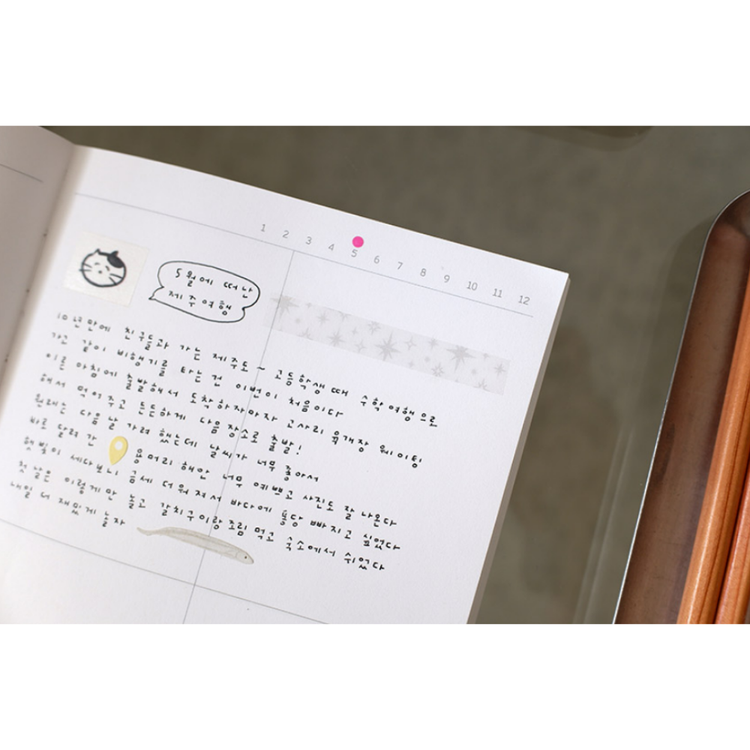 1 2 3 4 5 6 7 8 9 10 11 12
5월에 떠난
제주여행
10년만에 친구들과 가는 제주도~ 고등학생 때 수학여행으로
가고 같이 비행기를 타는건 이번이 처음이다
이른 아침에 출발해서 도착하자마자 고사리 육개장 웨이팅
해서 먹어주고 든든하게 다음 장소로 출발!
원래는 다음날 가려 했는데 날씨가 너무 좋아서
바로 달려간 용머리 해안 너무 예쁘고 사진도 잘 나온다
햇빛이 세다보니 금세 더워져서 바다에 퐁당 빠지고 싶었다
첫날은 이렇게만 놀고 갈치구이랑 조림 먹고 숙소에서 쉬었다
내일 더 재밌게 놀자